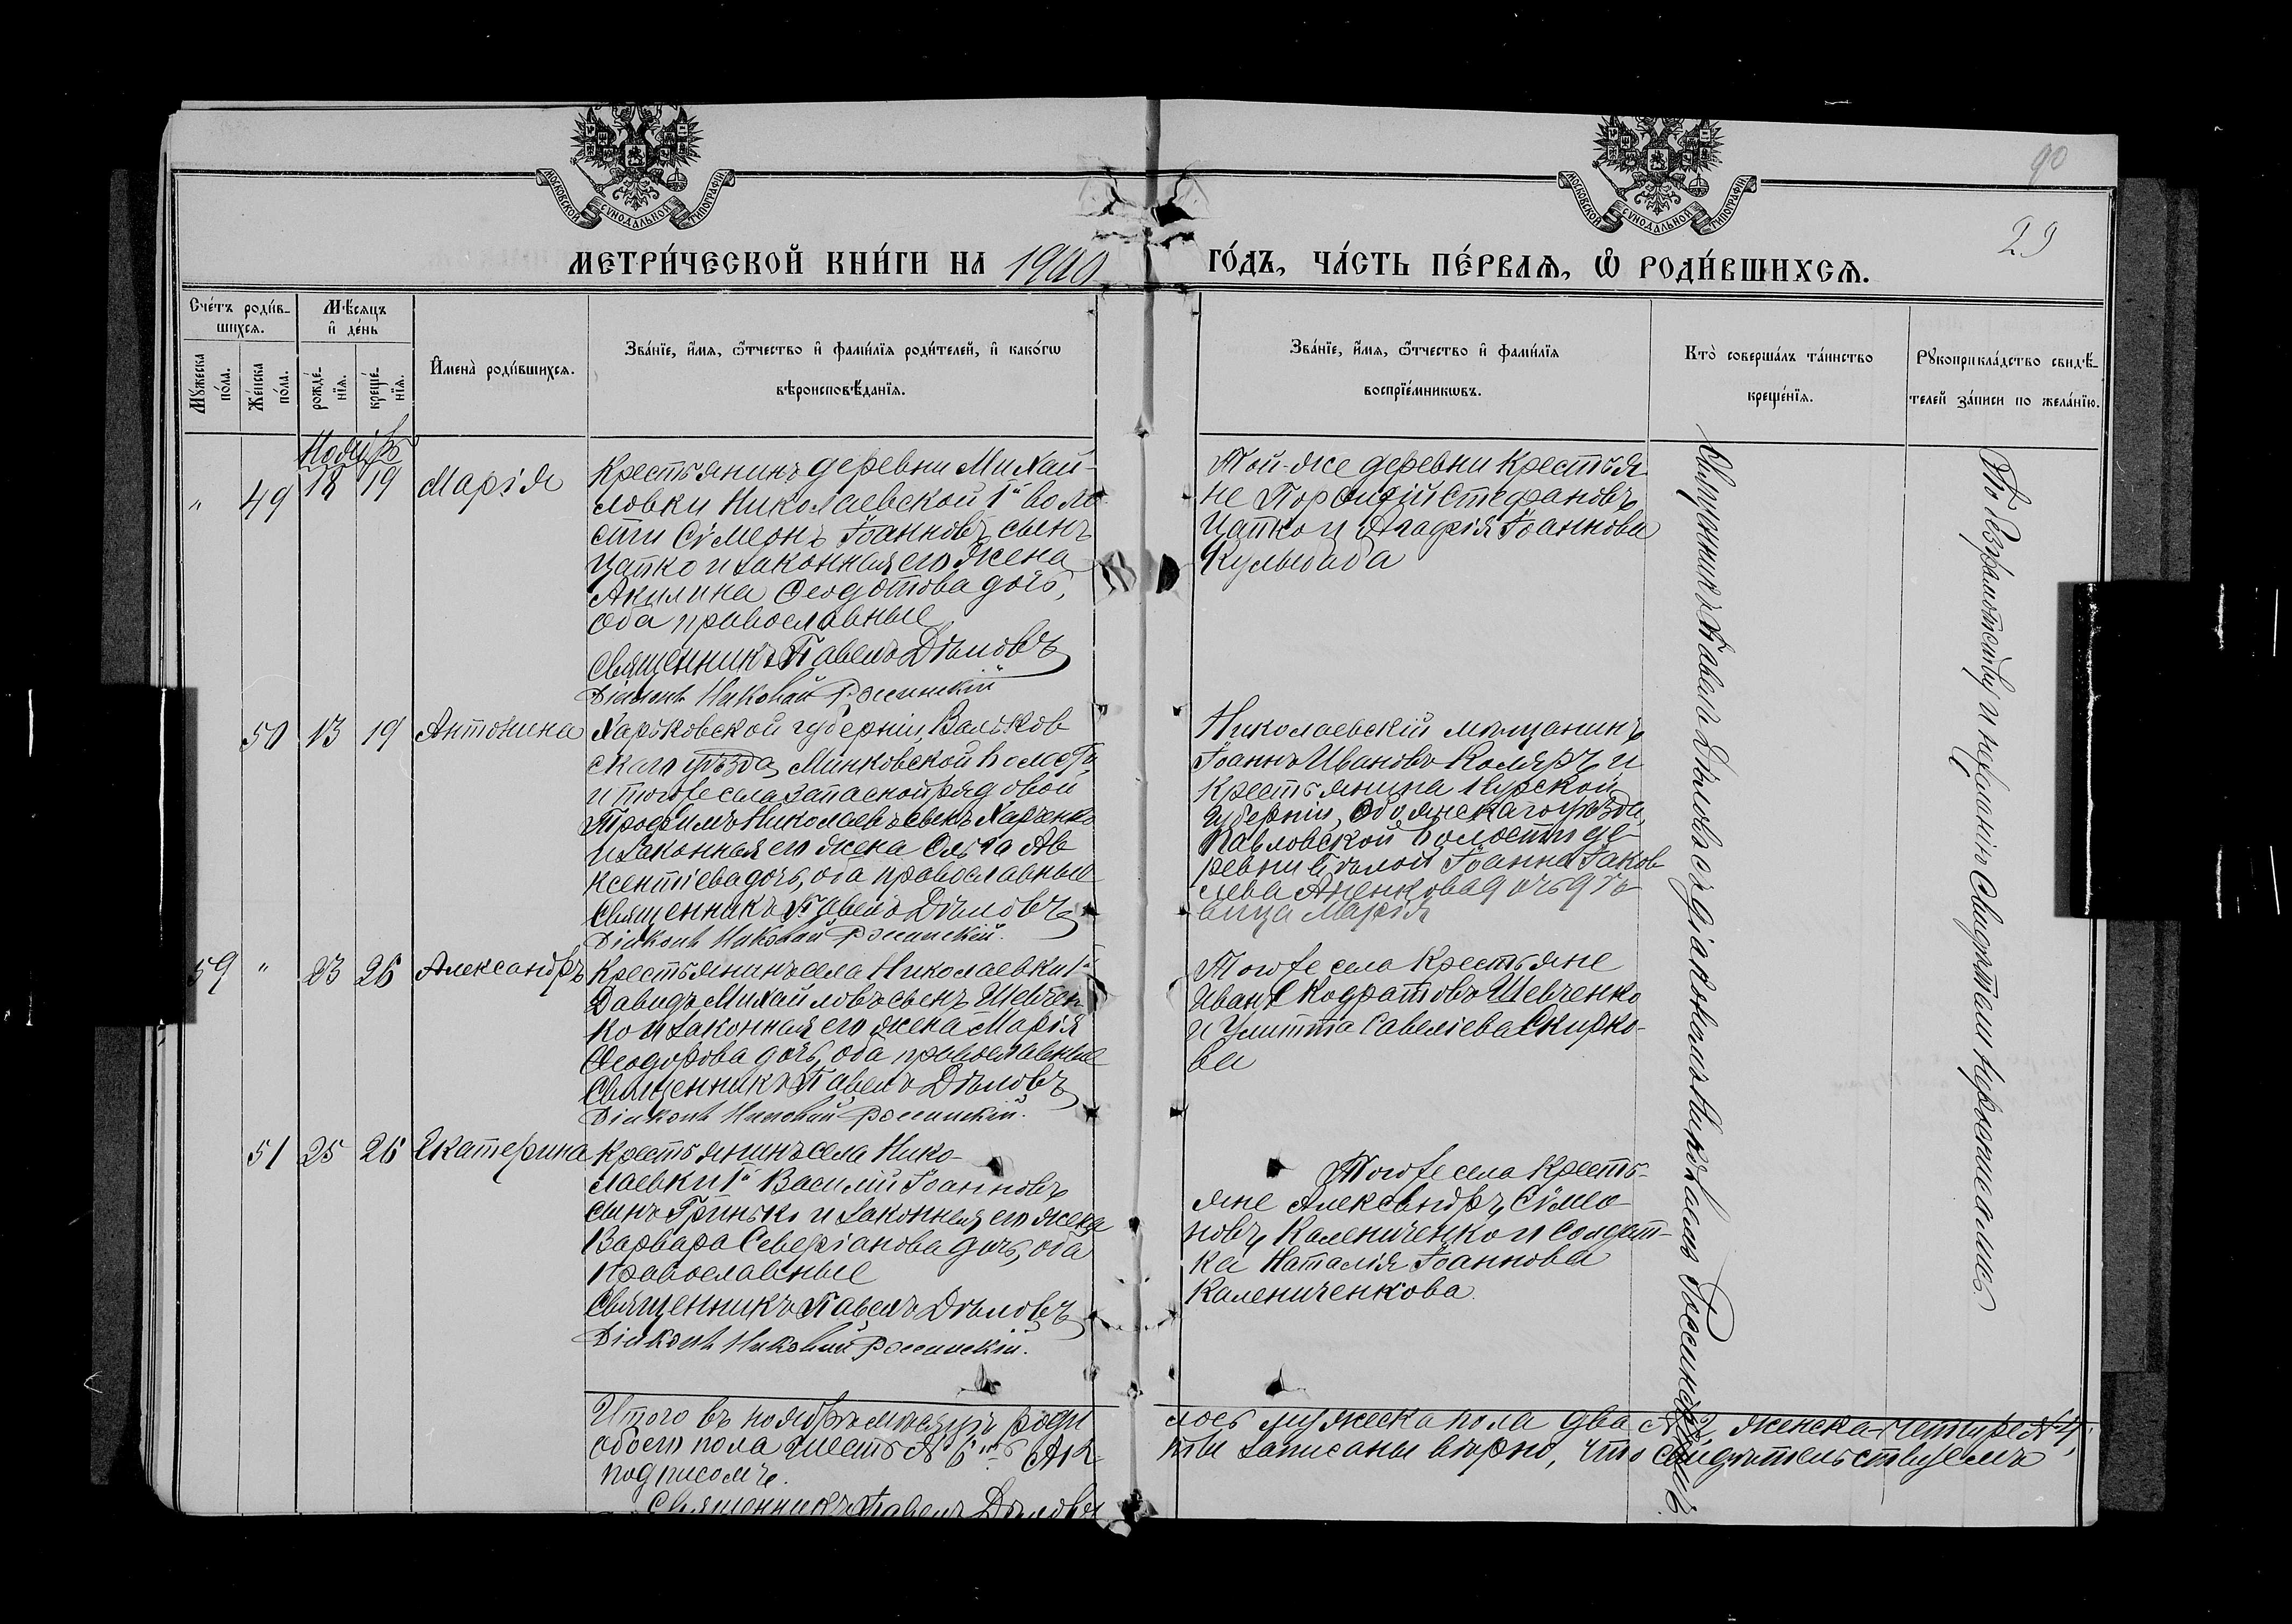 МОСКОВСКОЙ СѴНОДАЛЬНОЙ ТИПОГРАФІИ
МОСКОВСКОЙ СѴНОДАЛЬНОЙ ТИПОГРАФІИ
90
29
МЕТРИ́ЧЕСКОЙ КНИ́ГИ НА 1900
ГО́ДЪ, ЧА́СТЬ ПЕ́РВАѦ, Ѽ РОДИ́ВШИХСѦ.
Сче́тъ роди́в-
шихсѧ.
Мѣ́сѧцъ
и҆ де́нь
Мꙋ́жеска
по́ла.
Же́нска
по́ла.
рожде́-
нїѧ.
креще́-
нїѧ.
И҆мена̀ роди́вшихсѧ.
Зва́нїе, и҆́мѧ, ѻ҆́тчество и҆ фами́лїѧ роди́телей, и҆ како́гѡ
вѣроисповѣ́данїѧ.
Зва́нїе, и҆́мѧ, ѻ҆́тчество и҆ фами́лїѧ
воспрїе́мникѡвъ.
Кто̀ соверша́лъ та́инство
креще́нїѧ.
Рꙋкоприкла́дство свидѣ́-
телей за́писи по жела́нїю.
Ноябрь
" 49 18 19 Марія
Крестьянинъ деревни Михай-
ловки Николаевской 1й воло
сти Сѵмеонъ Іоанновъ сынъ
Цапко и законная его жена
Акилина Ѳеодотова дочь,
оба православные
Священникъ Павелъ Дѣловъ
Діаконъ Николай Россинскій
Той-же деревни крестья-
не Порфирій Стефановъ
Цапко и Агафія Іоаннова
50 13 19 Антонина
Харьковской губерніи, Валков
скаго уѣзда, Минковской волости
и того же села запасной рядовой
Трофимъ Николаевъ сынъ Харченко
и законная его жена Ольга Ав
ксентіева дочь, оба православные
Священникъ Павелъ Дѣловъ
Діаконъ Николай Россинскій.
Николаевскій мѣщанинъ
Іоаннъ Ивановъ Коляръ и
крестьянина Курской
губерніи, Обоянскаго уѣзда,
Павловской волости де-
ревни Бѣлой Іоанна Іаков
лева Аненкова дочь дѣ-
вица Марія
59 " 23 26 Александръ
Крестьянинъ села Николаевки 1й
Давидъ Михайловъ сынъ Шевчен
ко и законная его жена Марія
Ѳеодорова дочь, оба православные
Священникъ Павелъ Дѣловъ
Діаконъ Николай Россинскій.
Того же села крестьяне
Иванъ Кодратовъ Шевченко
и Улитта Савеліева Скирко-
ва
51 25 26 Екатерина
Крестьянинъ села Нико-
лаевки 1й Василій Іоанновъ
сынъ Гринько и законная его жена
Варвара Северіанова дочь, оба
православные
Священникъ Павелъ Дѣловъ
Діаконъ Николай Россинскій.
Того же села кресть-
яне Александръ Сѵмео-
новъ Калениченко и солдат-
ка Наталія Іоаннова
Калениченкова.
Священникъ Павелъ Дѣловъ съ діакономъ Николаемъ Россинскимъ.
По безграмотству и нежеланію свидѣтели
Итого въ ноябрѣ мѣсяцѣ роди
лось мужеска пола два № 2, женска-четыре № 4,
обоего пола шесть № 6
записаны вѣрно, что свидѣтельствуемъ
подписомъ.
Священникъ Павелъ Дѣловъ